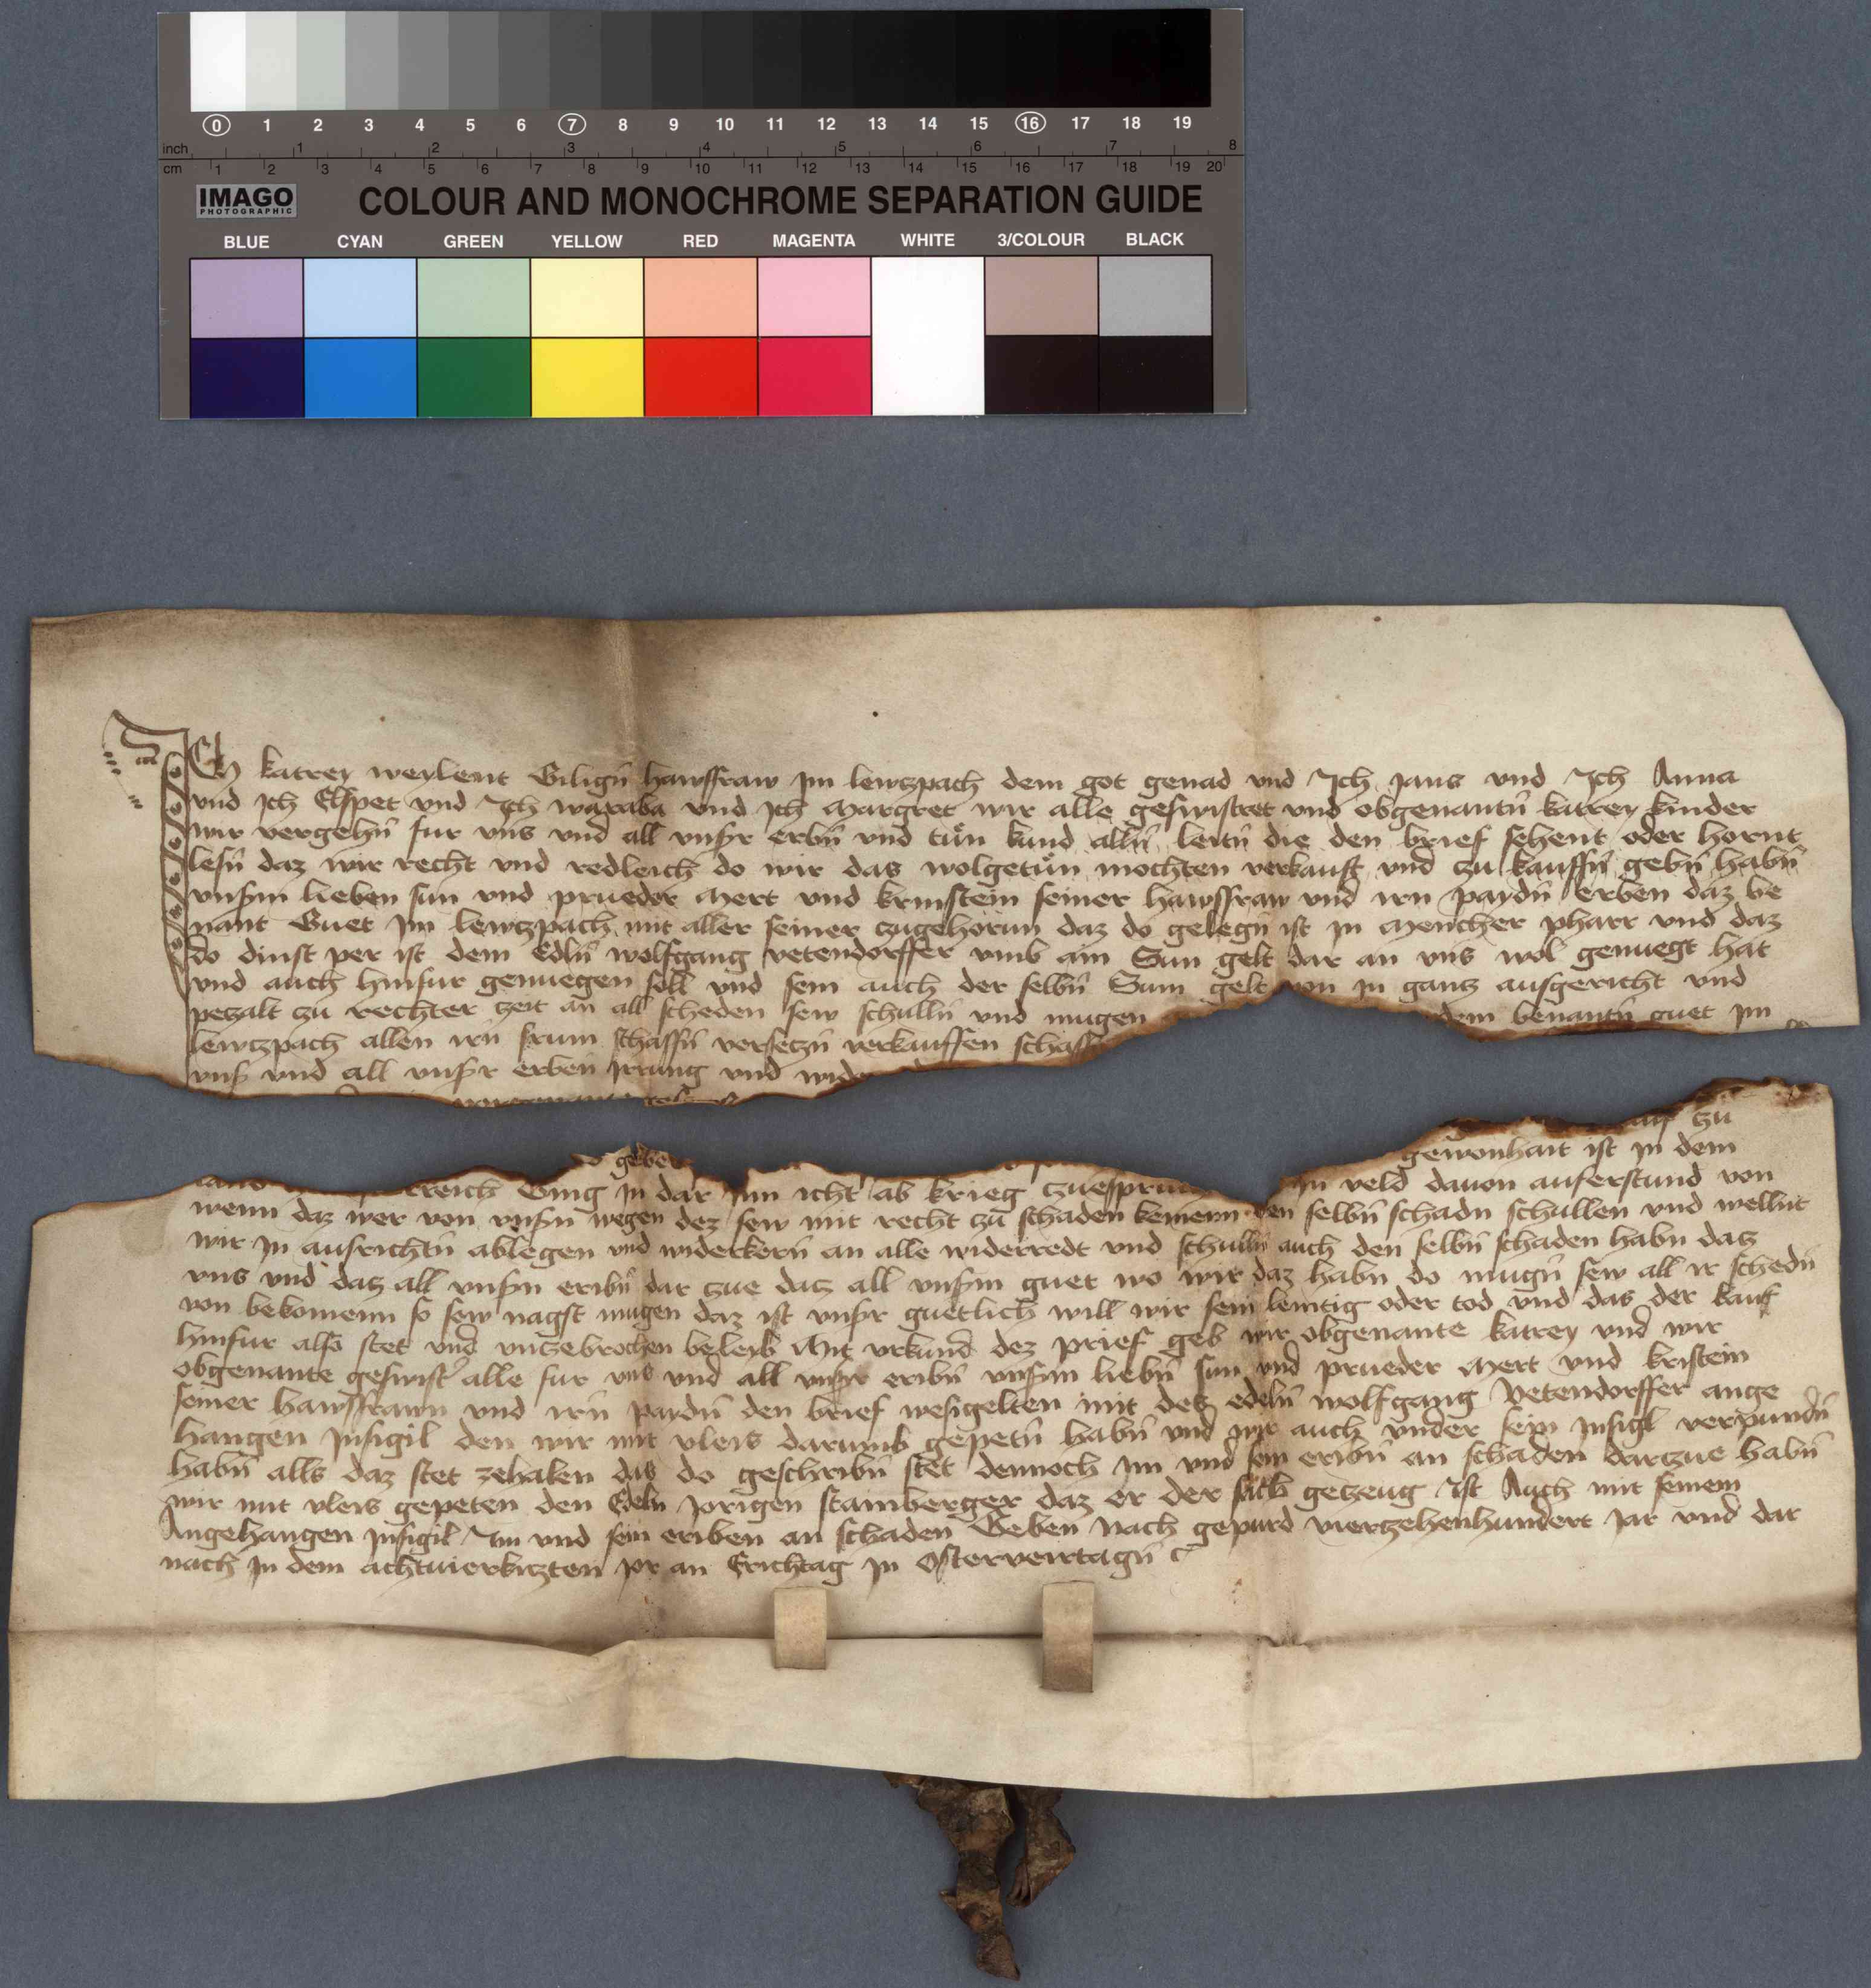 0 1 2 3 4 5 6 7 8 9 10 11 12 13 14 15 16 17 18 19
inch 1 2 3 4 5 6 7 8
cm 1 2 3 4 5 6 7 8 9 10 11 12 13 14 15 16 17 18 19 20
IMAGO PHOTOGRAPHIC COLOUR AND MONOCHROME SEPARATION GUIDE
BLUE CYAN GREEN YELLOW RED MAGENTA WHITE 3/COLOUR BLACK
ICh katrey weylent Giligñ hawsfraw Im lewtzpach dem got genad vnd Ich Jans vnd Ich Anna
vnd Ich Elspet vnd Ich waraba vnd Ich Margret wir alle geswistret vnd obgenantñ katrey kinder
wir vergehñ fur vns vnd all vnsr erbñ vnd tun kund allñ leitñ die den brief sehent oder hornt
lesñ daz wir recht vnd redleich do wir das wolgetun mochten verkauft vnd zu kauffñ gebñ habñ
vnsm lieben sun vnd prueder Mert vnd kristein seiner hawsfraw vnd irn paydñ erben daz be
nant Guet Im lewtzpach mit aller seiner zugehorun daz do gelegñ ist in Mencher pharr vnd daz
do dinst per ist dem Edlñ wolfgang vetendorffer vmb ain Sum gelt dar an vns wol genuegt hat
vnd auch hinfur genuegen soll vnd sein auch der selbñ Sum gelt von in gantz ausgericht vnd
petzalt zu rechter zeit an all scheden sew schullñ vnd mugen dem benantñ guet Im
lewtzpach allen irn frum schaffñ versetzñ verkauffen schaff
vns vnd all vnsr erben Irrung vnd wid
zu
geben gewonhait ist in dem
land reich Ging in dar Inn icht ab krieg zuespru In veld dauon auferstund von
wenn daz wer von vnsñ wegen dez sew mit recht zu schaden kemenn den selbñ schadn schullen vnd wellnt
wir in ausrichtñ ablegen vnd widerkerñ an alle widerredt vnd schullñ auch den selbñ schaden habn datz
vns vnd datz all vnsñ eribñ dar zue datz all vnsm guet wo wir daz habn do mugñ sew all ir schedñ
von bekomenn so sew nagst mugen daz ist vnsr guetlich will wir sein lemtig oder tod vnd das der kauf
hinfur also stet vnd vntzebrochen beleyb Mit vrkund dez prief geb wir obgenante katrey vnd wir
obgenante geswistr alle fur vns vnd all vnsr eribñ vnsm liebñ sun vnd prueder Mert vnd kristein
seiner hawsfrawn vnd irñ paydñ den brief wesigelten mit dez edelñ wolfgang Vetendorffer ange
hangen Insigil den wir mit vleis darumb gepetñ habñ vnd wir auch vnder sein Insigl verpundñ
habñ alls daz stet zehalten das do geschribñ stet dennoch im vnd sein eribñ an schaden dartzue habñ
wir mit vleis gepeten den Edeln Jorigen stamberger daz er der sach getzeug ist Auch mit seinem
Angehangen Insigil Im vnd sein eriben an schaden Geben nach gepurd viertzehenhundert Jar vnd dar
nach In dem achtuierkitzten Jor an Erichtag In Osterveirtagñ